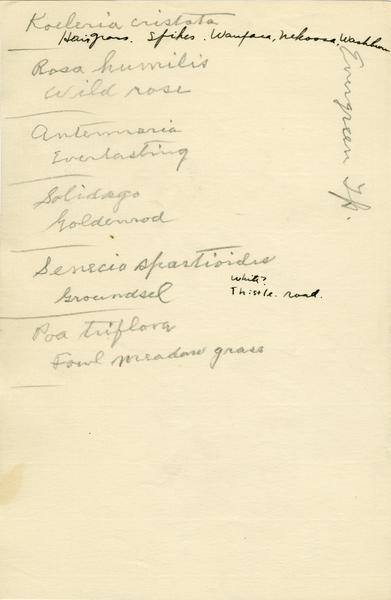 Koeleria cristata
Hairgrass. Spikes. Waupaca, Nekoosa, Washburn
Rosa humilis
Wild rose
Antennaria
Everlasting
Solidago
Goldenrod
Senecio spartioides
Groundsel
White?
Thistle. road.
Poa triflora
Fowl meadow grass
Evergreen Tp.